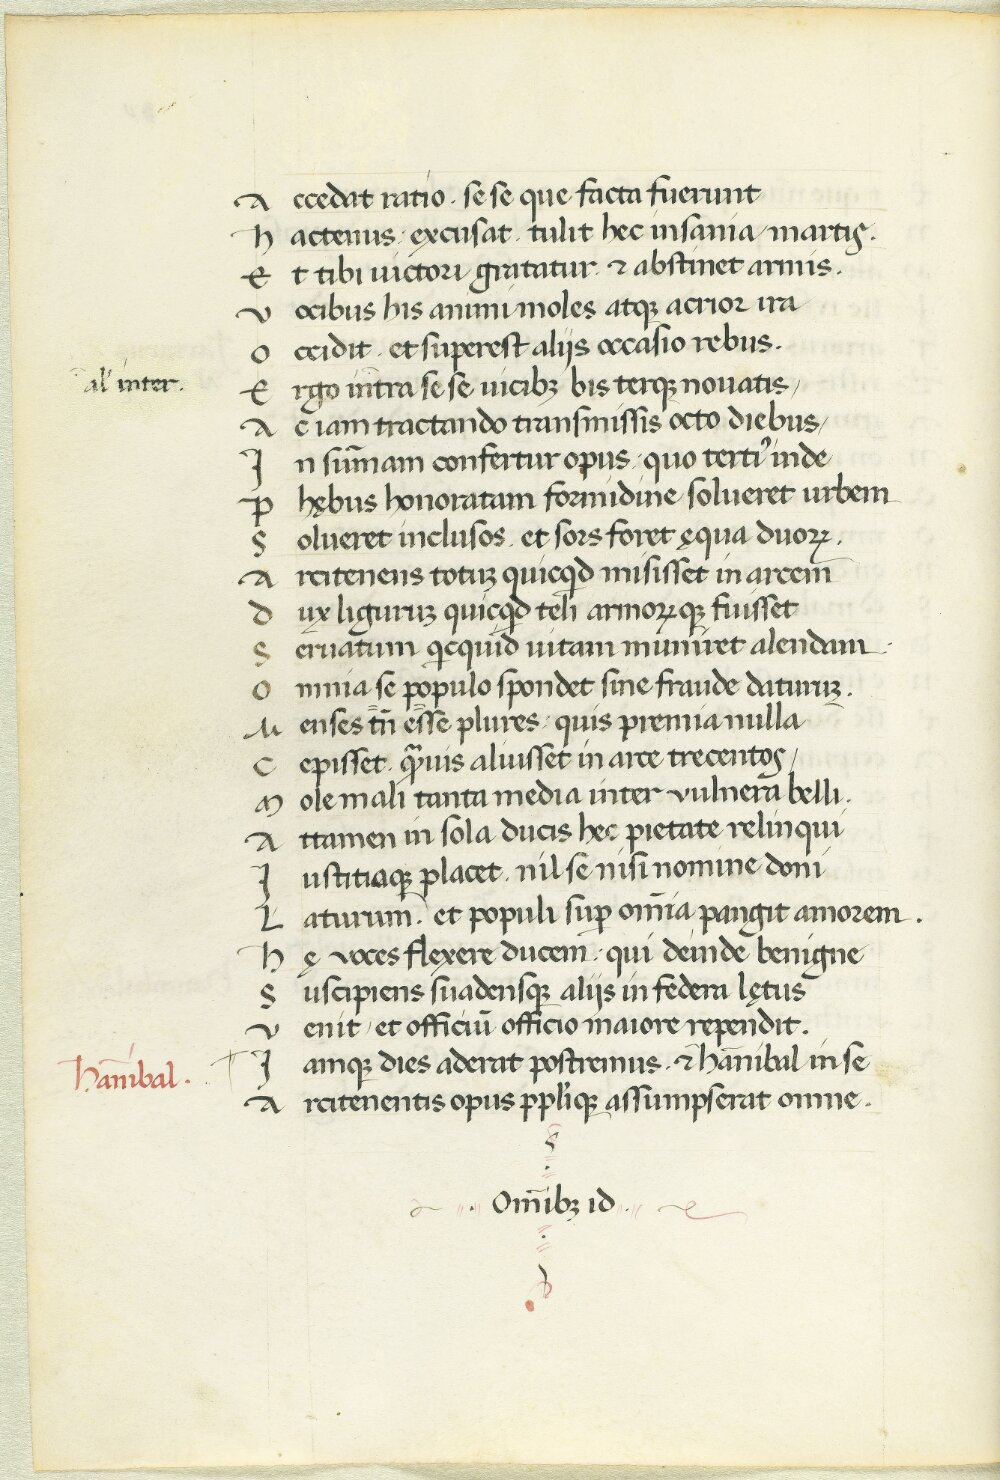 A ccedat ratio . se se que facta fuerunt
h actenus . excusat . tulit hec insania martis .
E t tibi uictori gratatur . & abstinet armis .
v ocibus his animi moles atqꝫ acrior ira
O ccidit . et superest aliis occasio rebus .
al' inter .
E rgo intra se se uicibꝫ bis terqꝫ nouatis /
A c iam tractando transmissis octo diebus /
I n sūmam confertur opus . quo terti⁹ inde
P hębus honoratam formidine solueret urbem
S olueret inclusos . et sors foret ęqua duoꝝ .
A rcitenens totuꝫ quicqd misisset in arcem
D ux liguruꝫ quicqd teli armoꝝqꝫ fuisset
S eruatum qcquid uitam muniret alendam .
O mnia se populo spondet sine fraude daturuꝫ .
M enses tn̄ esse plures . quis premia nulla
C episset . quis aluisset in arce trecentos /
M ole mali tanta media inter vulnera belli .
A ttamen in sola ducis hec pietate relinqui
I ustitiaqꝫ placet . nil se nisi nomine doni
L aturum . et populi sup om̄ia pangit amorem .
h ę voces flexere ducem . qui deinde benigne
S uscipiens suadensqꝫ aliis in federa lętus
v enit / et officiū officio maiore rependit .
hānibal .
I amqꝫ dies aderat postremus . & hānibal in se
A rcitenentis opus ppl'iqꝫ assumpserat omne .
Om̄ibꝫ id .